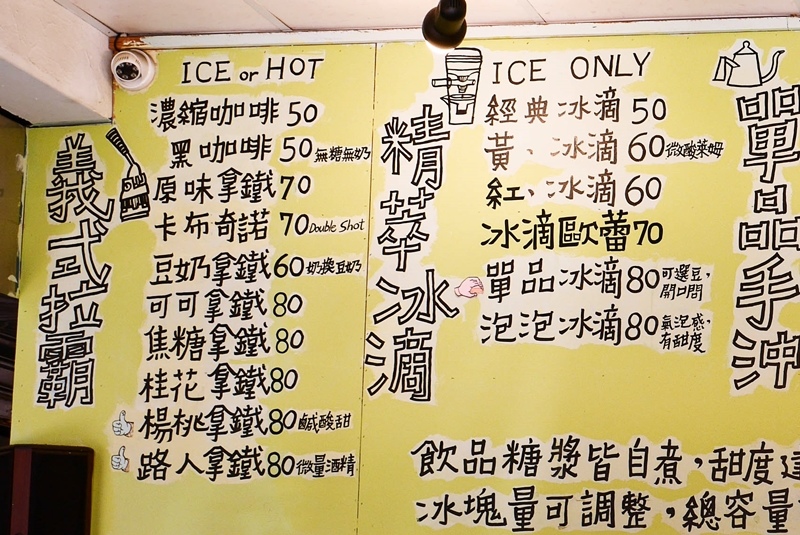 義式拉霸
ICE or HOT
濃縮咖啡 50
黑咖啡 50 無糖無奶
原味拿鐵 70
卡布奇諾 70 Double Shot
豆奶拿鐵 60 奶換豆奶
可可拿鐵 80
焦糖拿鐵 80
桂花拿鐵 80
楊桃拿鐵 80 鹹酸甜
路人拿鐵 80 微量酒精
精萃冰滴
ICE ONLY
經典冰滴 50
黃、冰滴 60 微酸萊姆
紅、冰滴 60
冰滴歐蕾 70
單品冰滴 80 可選豆,
開口問
泡泡冰滴 80 氣泡感,
有甜度
單品手沖
飲品糖漿皆自煮,甜度這
冰塊量可調整,總容量